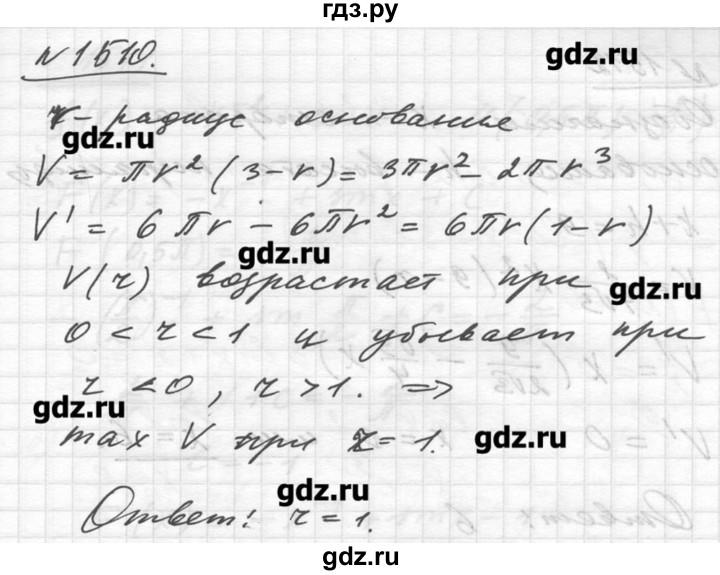 гдз.ру
№1510.
gdz.ru
r - радиус основание
gdz.ru
V = πr² (3-r) = 3πr² - 2πr³
V' = 6πr - 6πr² = 6πr(1-r)
gdz.ru
V(r) возрастает при
gdz.ru
0 < r < 1 и убывает при
r < 0, r > 1. =>
gdz.ru
max V при r = 1.
gdz.ru
gdz.ru
Ответ: r = 1.
gdz.ru